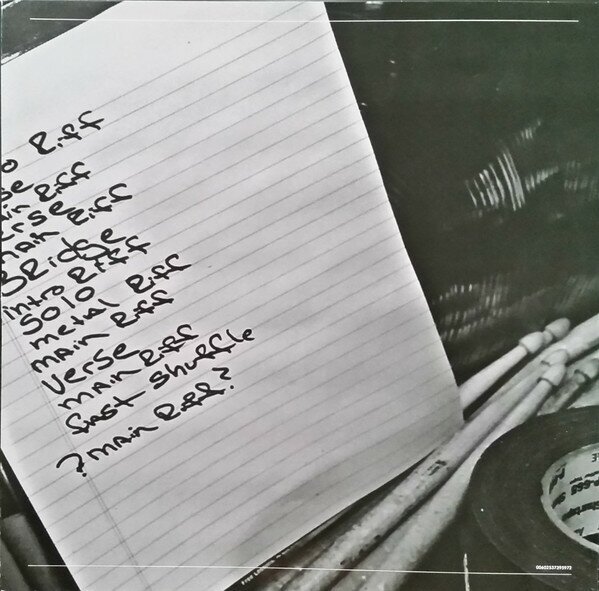 o Riff
se
ain Riff
erse
main Riff
BRidge
intro Riff
Solo
metal Riff
main Riff
verse
main Riff
fast shuffle
? main Riff?
00602537395972